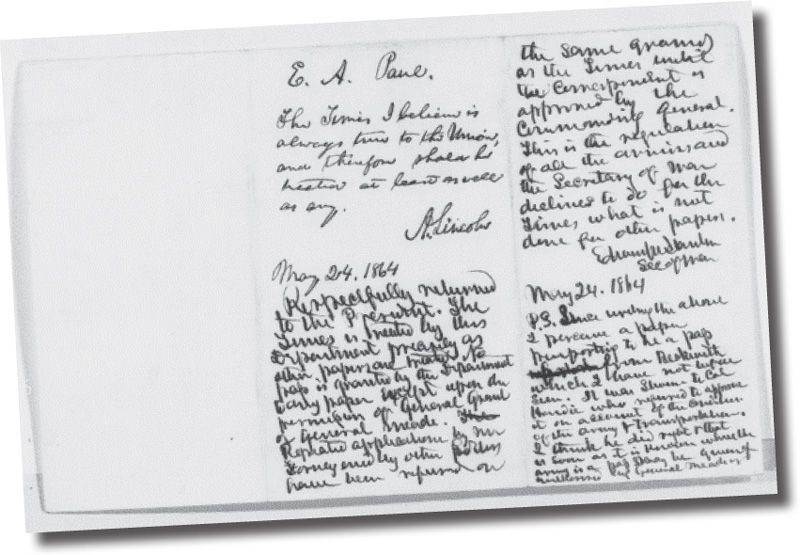 E. A. Paul.
The Times I believe is
always true to the Union,
and therefore should be
treated at least as well
as any.
A. Lincoln
May 24. 1864
Respectfully returned
to the President. The
Times is treated by this
Department precisely as
other papers are treated. No
pass is granted by the Department
to any paper except upon the
permission of General Grant
or General Meade.
Repeated applications by Mr
Forney and by other editors
have been refused on
the same grounds
as the Times until
the Correspondent is
approved by the
Commanding General.
This is the regulation
of all the armies and
the Secretary of War
declines to do for the
Times what is not
done for other papers.
Edwin M Stanton
Sec of War
May 24. 1864
P.S. Since writing the above
I perceive a paper
purporting to be a pass
from Beckwith
which I have not before
seen. It was shown to Col
Hardie who refused to approve
it on account of the condition
of the army & transportation.
I think he did right & that
as soon as it is known where the
army is a pass may be given if
by General Meade